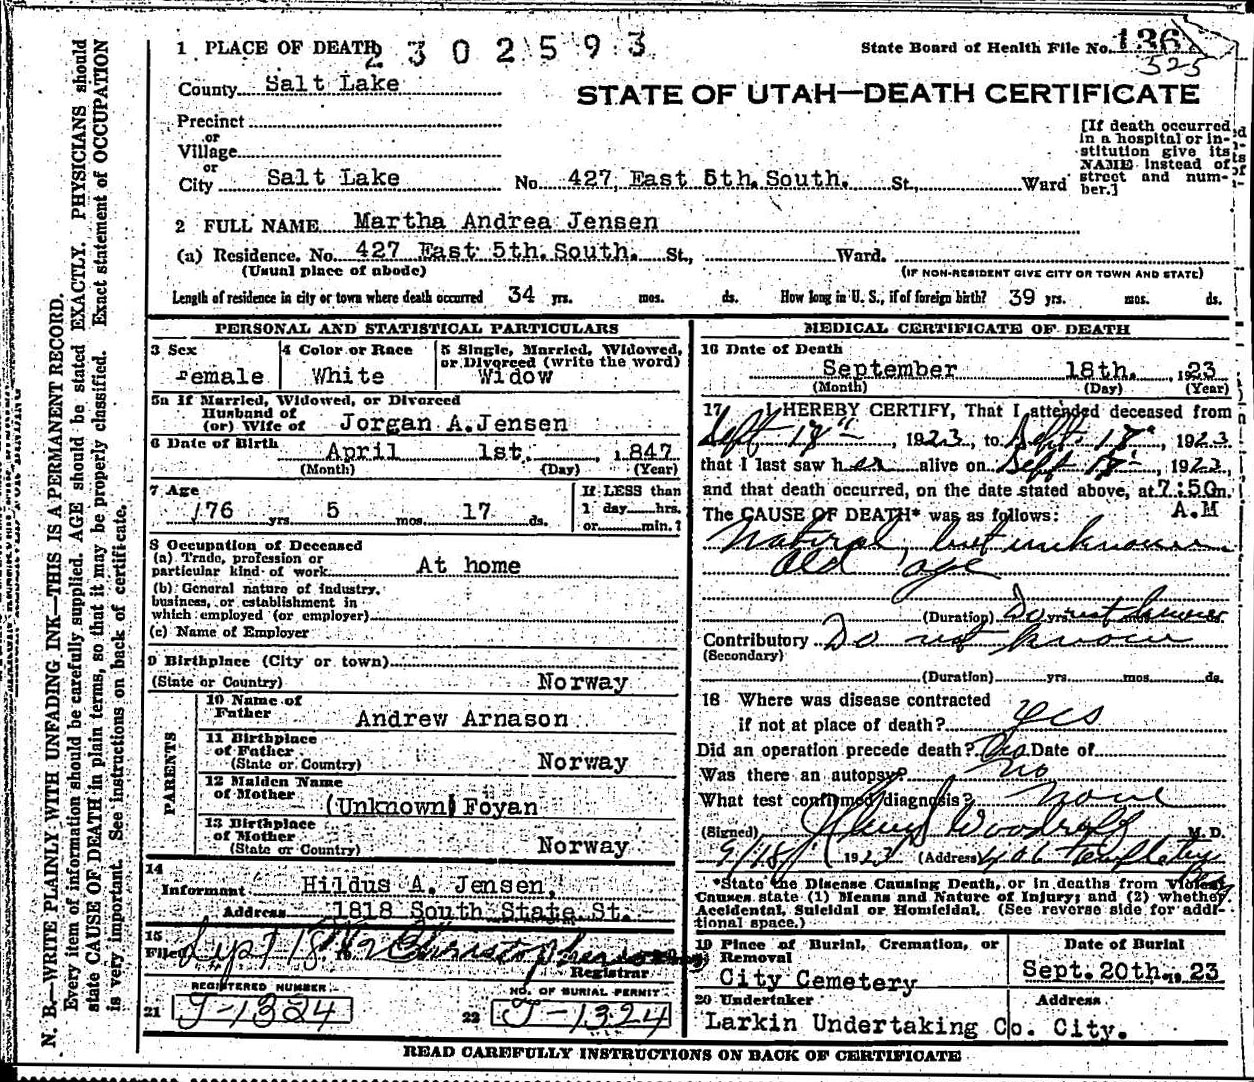 N. B.—WRITE PLAINLY WITH UNFADING INK—THIS IS A PERMANENT RECORD.
Every item of information should be carefully supplied. AGE should be stated EXACTLY. PHYSICIANS should
state CAUSE OF DEATH in plain terms, so that it may be properly classified. Exact statement of OCCUPATION
is very important. See instructions on back of certificate.
1 PLACE OF DEATH
2302593
State Board of Health File No.
525
County Salt Lake
STATE OF UTAH—DEATH CERTIFICATE
Precinct
or
Village
or
City Salt Lake No. 427, East 5th. South. St., Ward
[If death occurred
in a hospital or in-
stitution give its
NAME instead of
street and num-
ber.]
2 FULL NAME Martha Andrea Jensen
(a) Residence. No. 427 East 5th. South. St., Ward.
(Usual place of abode)
(IF NON-RESIDENT GIVE CITY OR TOWN AND STATE)
Length of residence in city or town where death occurred 34 yrs. mos. ds. How long in U. S., if of foreign birth? 39 yrs. mos. ds.
PERSONAL AND STATISTICAL PARTICULARS
3 Sex
Female
4 Color or Race
White
5 Single, Married, Widowed,
or Divorced (write the word)
Widow
5a If Married, Widowed, or Divorced
Husband of
(or) Wife of Jorgan A. Jensen
6 Date of Birth
April 1st. , 1847
(Month) (Day) (Year)
7 Age
76 yrs. 5 mos. 17 ds.
If LESS than
1 day hrs.
or min.?
8 Occupation of Deceased
(a) Trade, profession or
particular kind of work At home
(b) General nature of industry,
business, or establishment in
which employed (or employer)
(c) Name of Employer
9 Birthplace (City or town)
(State or Country) Norway
PARENTS
10 Name of
Father Andrew Arnason
11 Birthplace
of Father
(State or Country) Norway
12 Maiden Name
of Mother (Unknown) Foyan
13 Birthplace
of Mother
(State or Country) Norway
14
Informant Hildus A. Jensen.
Address 1818 South State St.
15
Filed Sept 18
Registrar
REGISTERED NUMBER
21 J-1324
NO. OF BURIAL PERMIT
22 J-1324
MEDICAL CERTIFICATE OF DEATH
16 Date of Death
September 18th. , 1923
(Month) (Day) (Year)
17 I HEREBY CERTIFY, That I attended deceased from
Sept 18th , 1923, to Sept. 18th , 1923
that I last saw her alive on Sept 18th , 1923,
and that death occurred, on the date stated above, at 7:50 m.
A.M
The CAUSE OF DEATH* was as follows:
Natural, but unknown
Old age
(Duration) Do yrs. not know
Contributory Do not know
(Secondary)
(Duration) yrs. mos. ds.
18 Where was disease contracted
if not at place of death? yes
Did an operation precede death? No Date of
Was there an autopsy? No
What test confirmed diagnosis? None
(Signed) Woodruff M. D.
9/18/ 1923 (Address)
*State the Disease Causing Death, or in deaths from Violent
Causes state (1) Means and Nature of Injury; and (2) whether
Accidental, Suicidal or Homicidal. (See reverse side for addi-
tional space.)
19 Place of Burial, Cremation, or
Removal
City Cemetery
Date of Burial
Sept. 20th., 1923
20 Undertaker
Larkin Undertaking Co.
Address
City.
READ CAREFULLY INSTRUCTIONS ON BACK OF CERTIFICATE